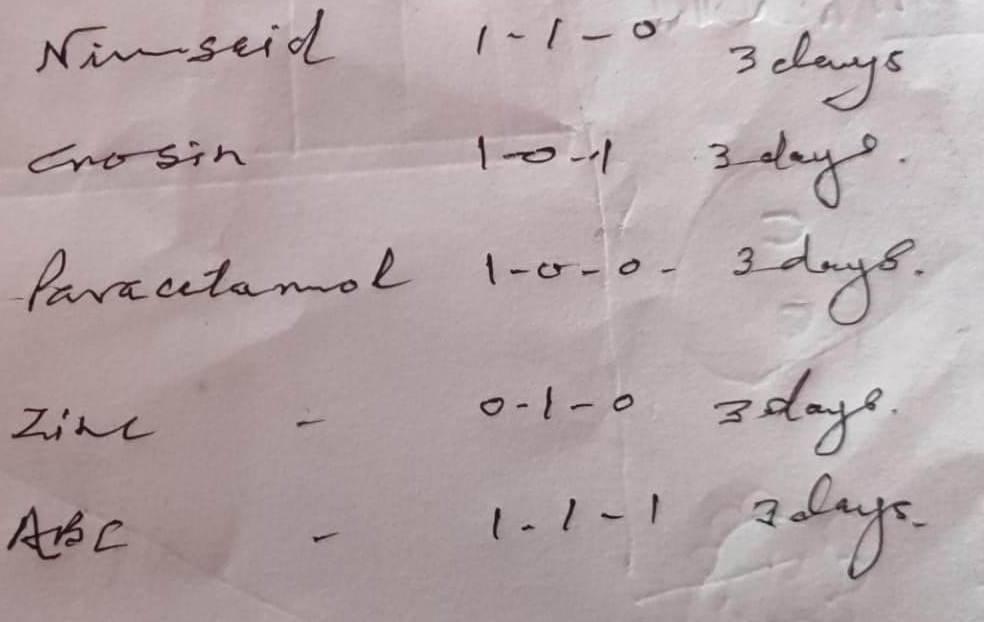 Nimseid 1-1-0 3 days
Crosin 1-0-1 3 days.
Paracetamol 1-0-0- 3 days.
Zinc - 0-1-0 3 days.
ABC - 1-1-1 3 days.